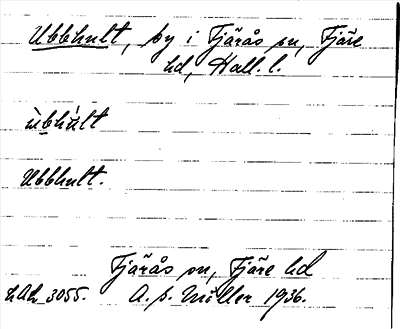 Ubbhult, by i Fjärås sn, Fjäre
hd, Hall. l.
ùbhált
Ubbhult.
Fjärås sn, Fjäre hd
LAL 3055. A. s. Möller 1936.